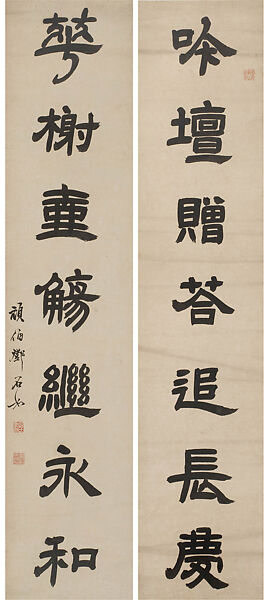 吟壇贈荅追長慶
華榭壷觴繼永和
頑伯鄧石如